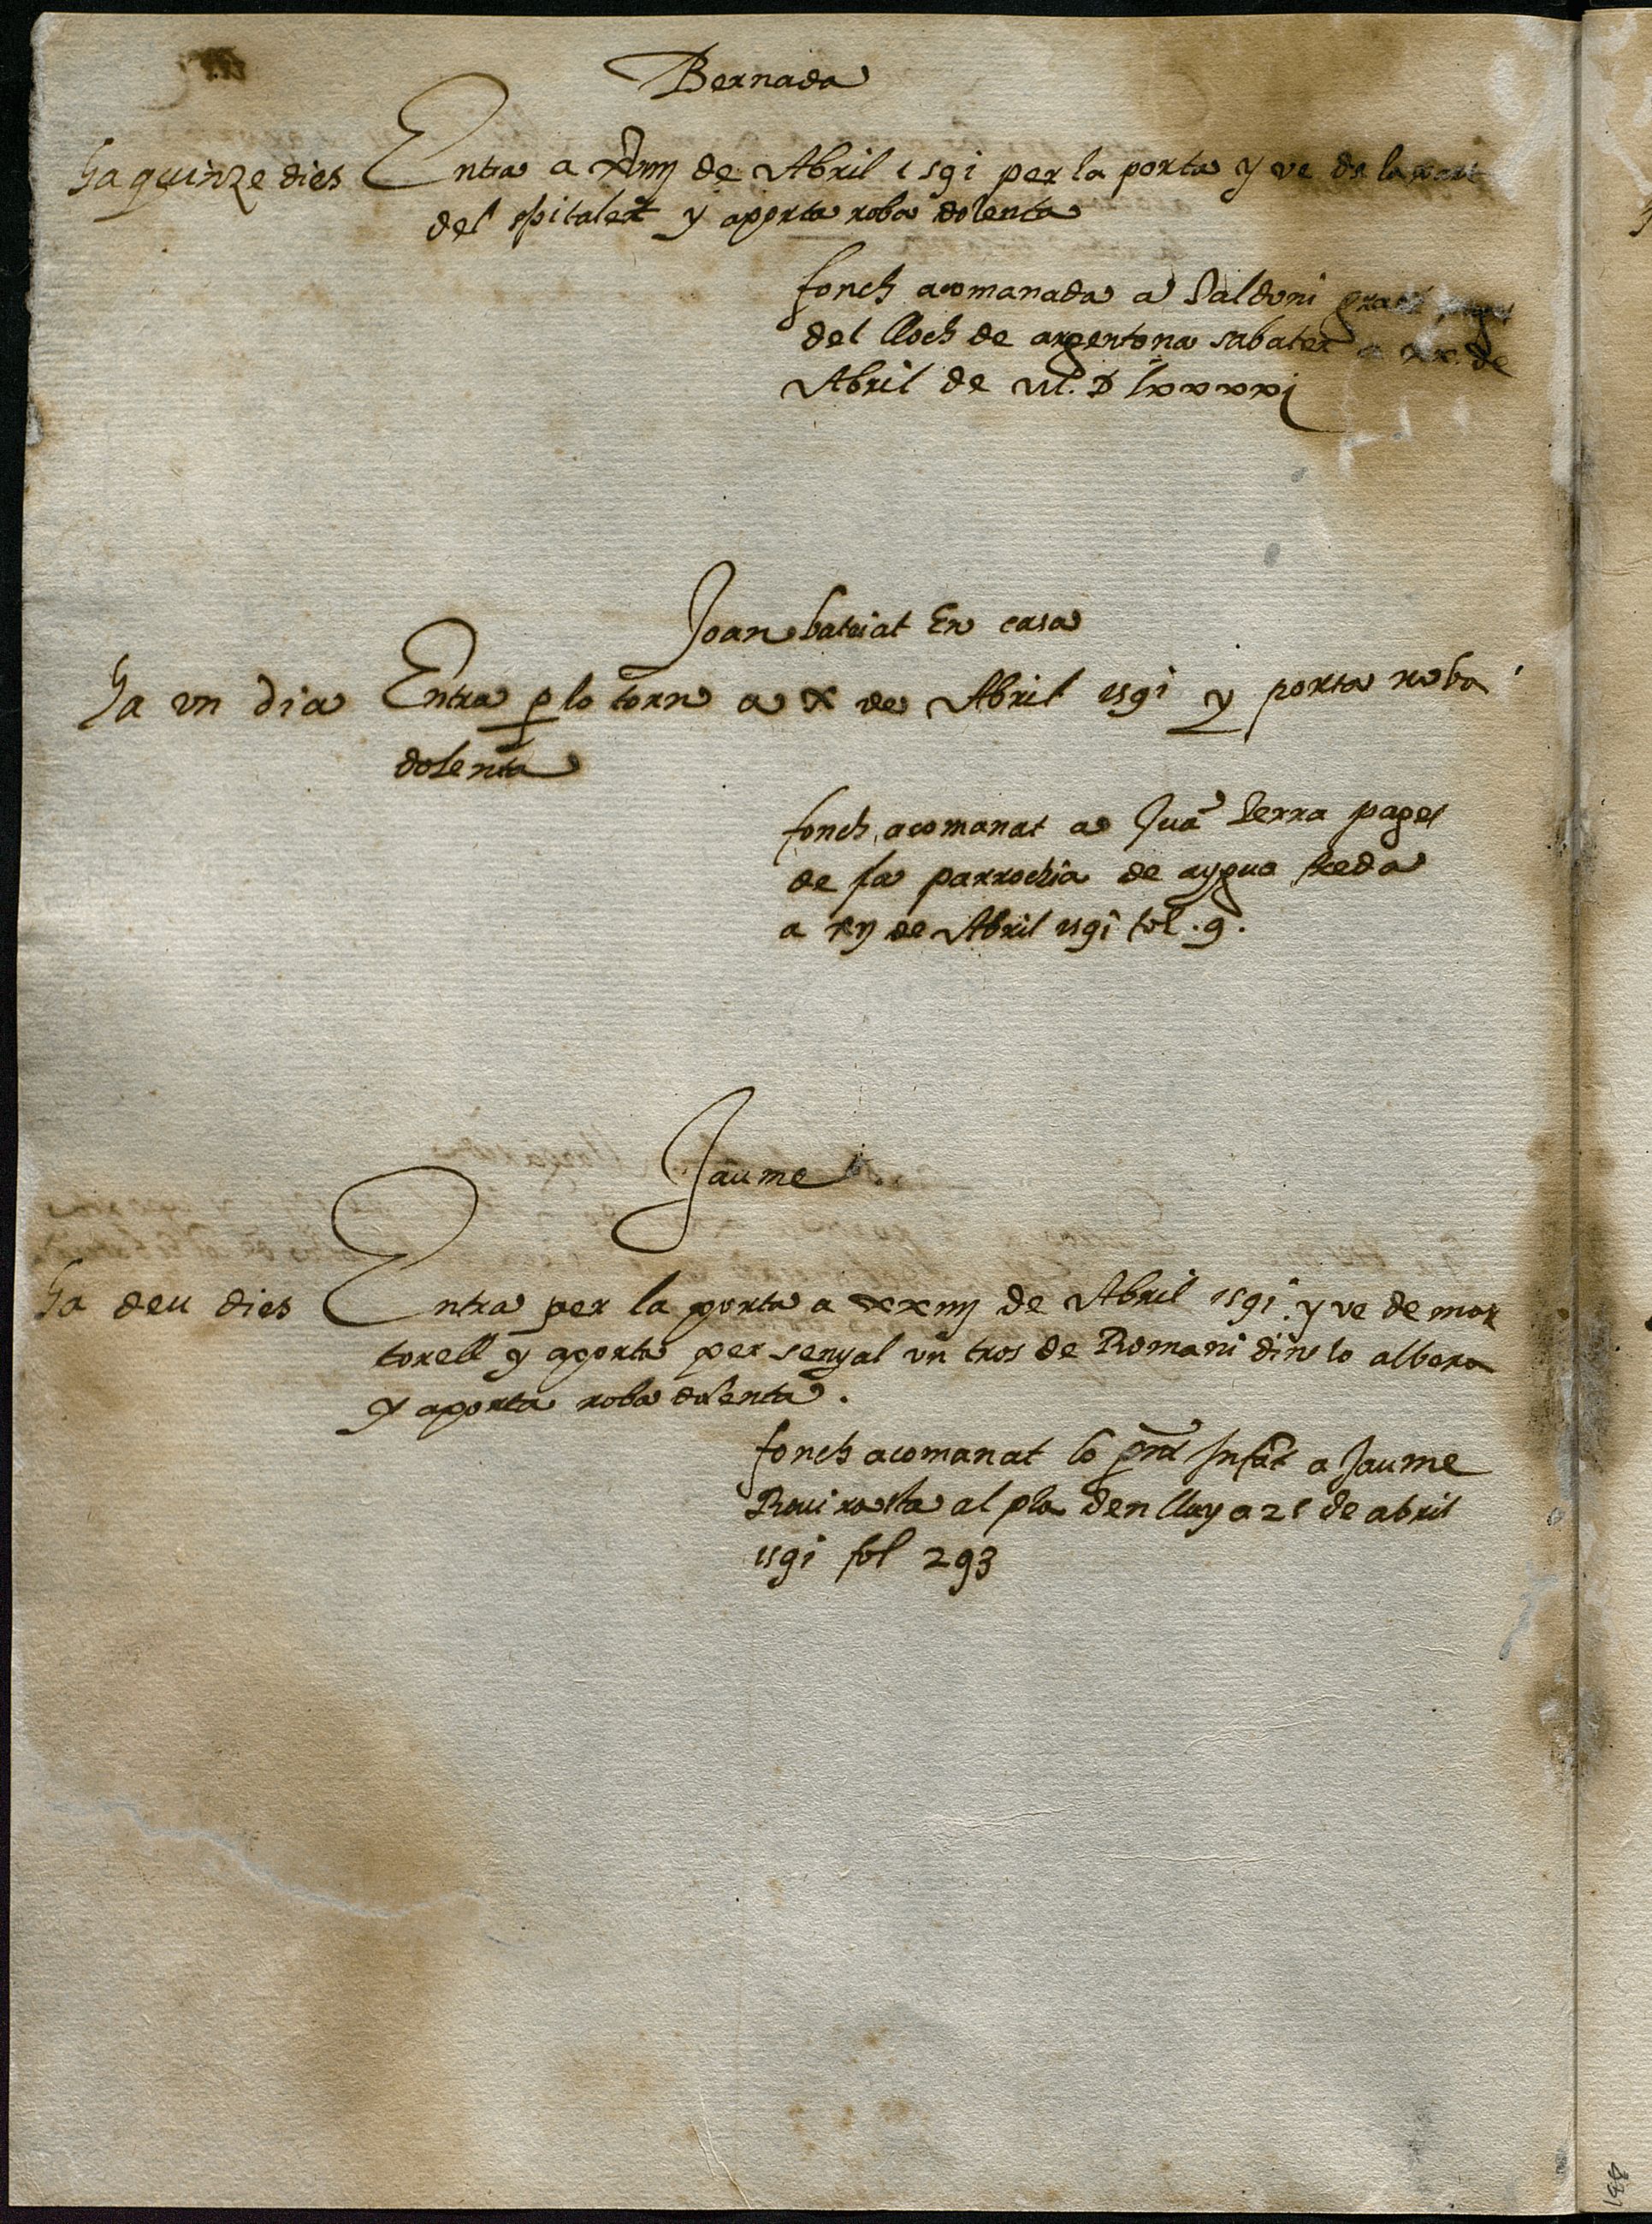 Bernada
Ha quinze dies Entra a de Abril 1591 per la porta y ve de la part
del spitalet y aporta roba dolenta
fonch acomanada a Saldoni
del lloch de argentona sabater a xx de
Abril de M. D lxxxxi
Joan bateiat En casa
Ha vn dia Entra p lo torn a x de Abril 1591 y porta roba
dolenta
fonch acomanat a Juā Serra pages
de la parrochia de aygua freda
a xij de Abril 1591 fol. 9.
Jaume
Ha deu dies Entra per la porta a xxiiij de Abril 1591 y ve de mar
torell y aporta per senyal vn tros de Romani dins lo albera
y aporta roba dolenta.
fonch acomanat lo pn̄t Infāt a Jaume
Rouirosta al pla den lluy a 25 de abril
1591 fol 293